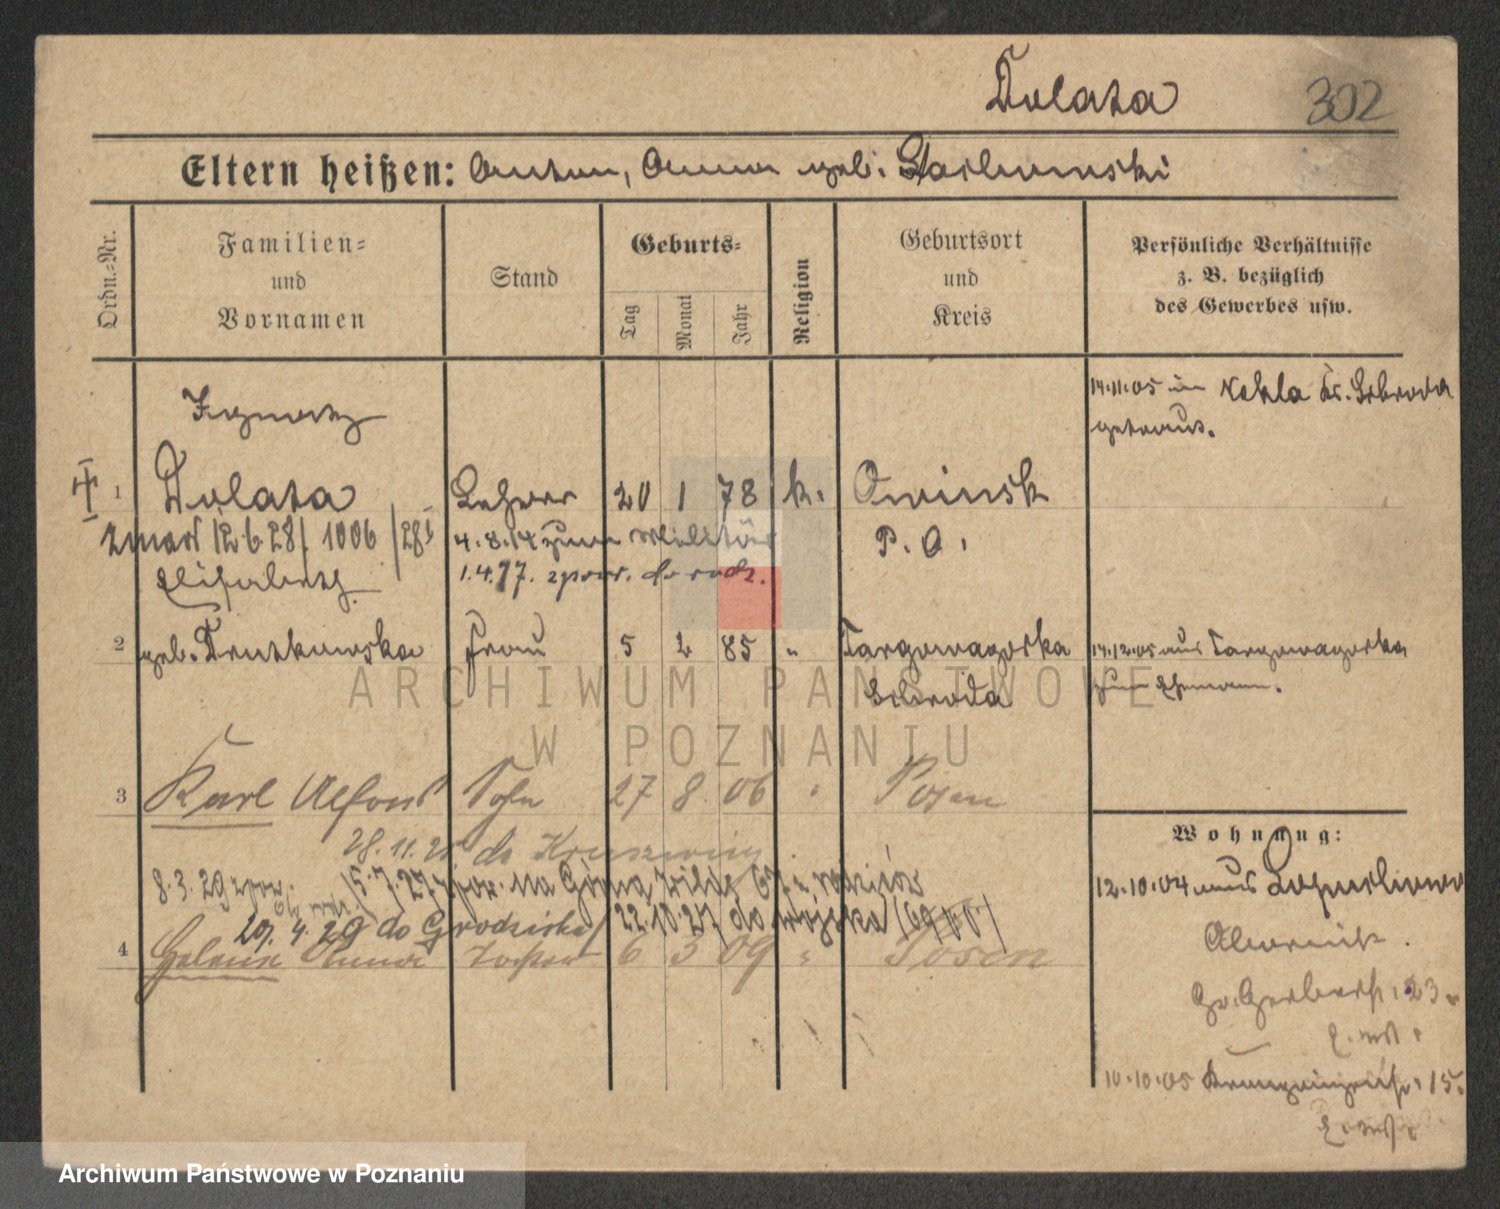 Dolata 302
Eltern heißen: Anton, Anna geb.
Ordn.-Nr.
Familien-
und
Vornamen
Stand
Geburts-
Tag
Monat
Jahr
Religion
Geburtsort
und
Kreis
Persönliche Verhältnisse
z. B. bezüglich
des Gewerbes usw.
14.11.05 in Nekla Kr. Schroda
getraut.
Ignatz
1 Dolata Lehrer 20 1 78 k. Owinsk
zmarł 12.6.28 1006/28 4.8.14 zum Militär P. O.
Elisabeth 1.4.
2 geb. Frau 5 2 85 " Targowagorka 14.12.05 aus Targowagorka
Schroda zum Ehemann.
3 Karl Alfons Sohn 27 8 06 " Posen
Wohnung:
28.11. do
8.3.29 15.7.27 na Górna Wilda 67 u rodziców
12.10.04 aus
29.4.29 do Grodziska 22.10.27 do wojska
4 Helene Anna Tochter 6 3 09 " Posen
Obornik.
Gr. Gerberstr. 23
10.10.05 Kronprinzenstr. 15.
ARCHIWUM PAŃSTWOWE
W POZNANIU
Archiwum Państwowe w Poznaniu